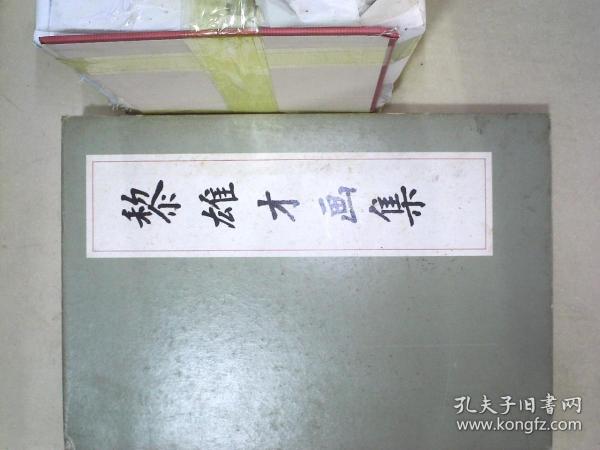 黎雄才画集
孔夫子旧書网
www.kongfz.com